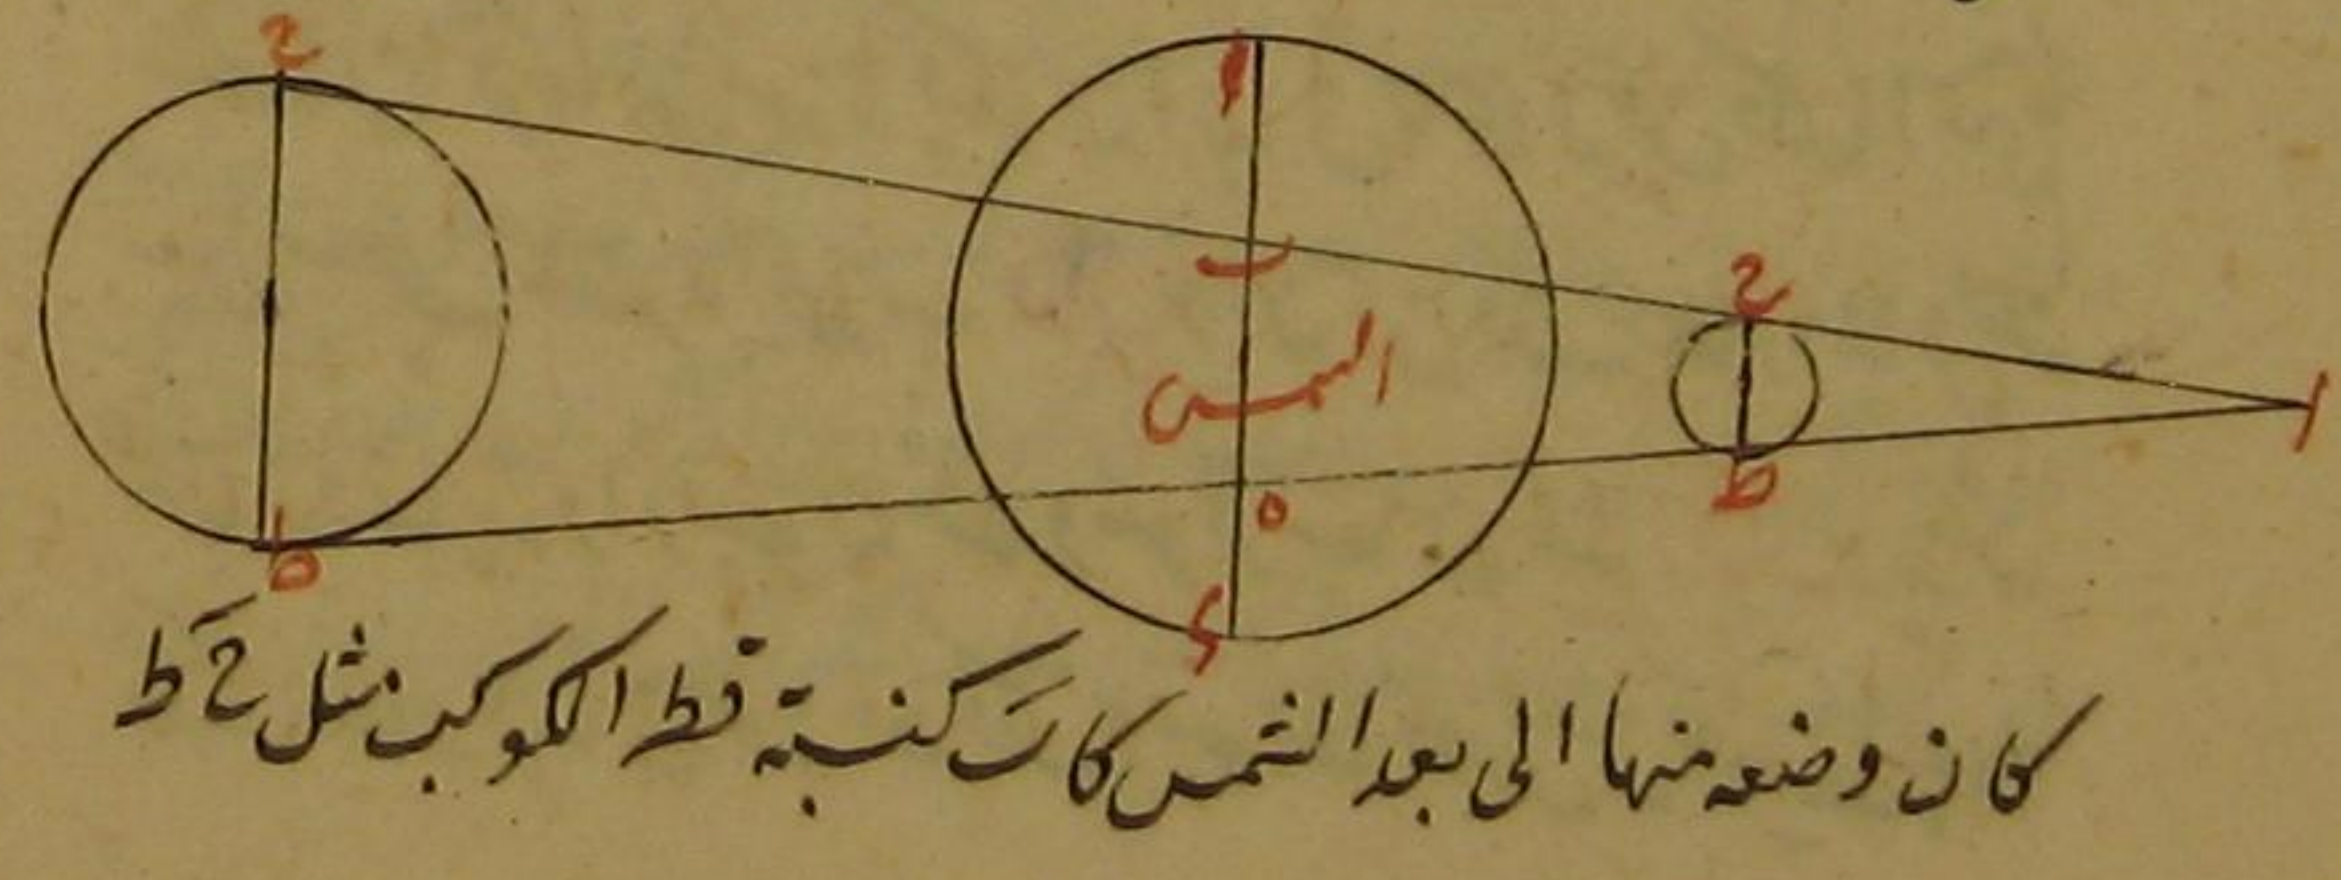 ح
ا
ب
ح
الشمس
ا
ط
ه
ط
كان وضعه منها الى بعد الشمس كات كنسبة قطر الكوكب مثل ح ط